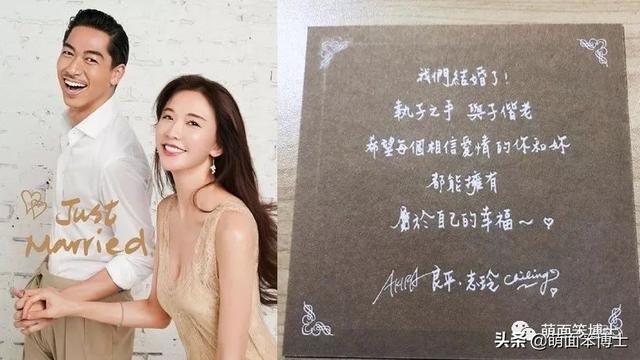 Just
Married
我們結婚了！
執子之手 與子偕老
希望每個相信愛情的你和妳
都能擁有
屬於自己的幸福～♡
AKIRA 良平·志玲 chiling
萌面笨博士
头条 @萌面笨博士